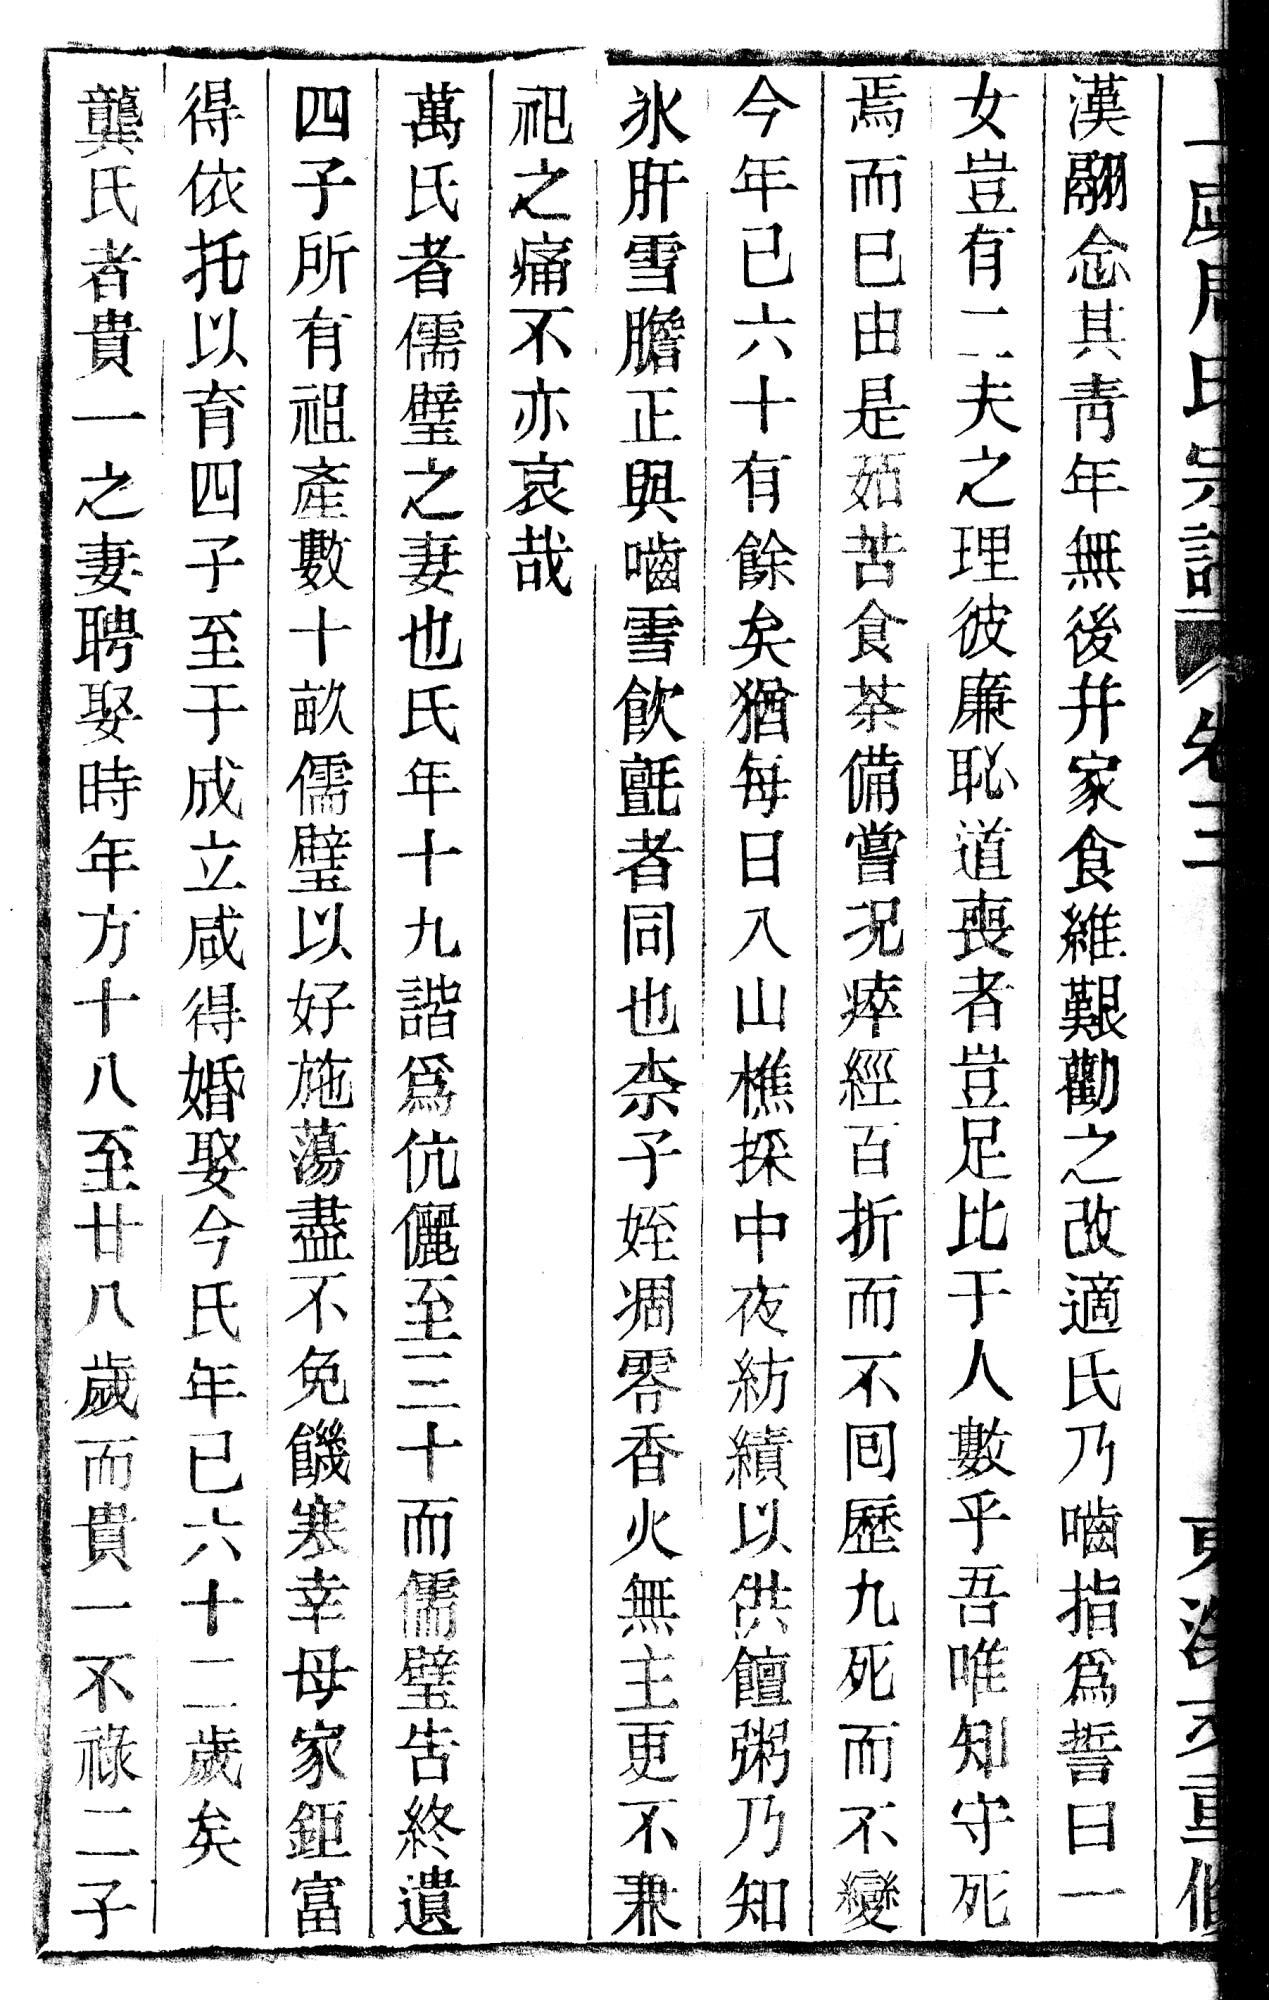 周氏宗譜 卷三
漢翮念其青年無後幷家食維艱勸之改適氏乃嚙指爲誓曰一
女豈有二夫之理彼廉恥道喪者豈足比于人數乎吾唯知守死
焉而已由是茹苦食荼備嘗況瘁經百折而不囘歷九死而不變
今年已六十有餘矣猶每日入山樵採中夜紡績以供饘粥乃知
氷肝雪膽正與嚙雪飲氈者同也柰子姪凋零香火無主更不兼
祀之痛不亦哀哉
萬氏者儒璧之妻也氏年十九諧爲伉儷至三十而儒璧告終遺
四子所有祖產數十畝儒璧以好施蕩盡不免饑寒幸母家鉅富
得依托以育四子至于成立咸得婚娶今氏年已六十二歲矣
龔氏者貴一之妻聘娶時年方十八至廿八歲而貴一不祿二子